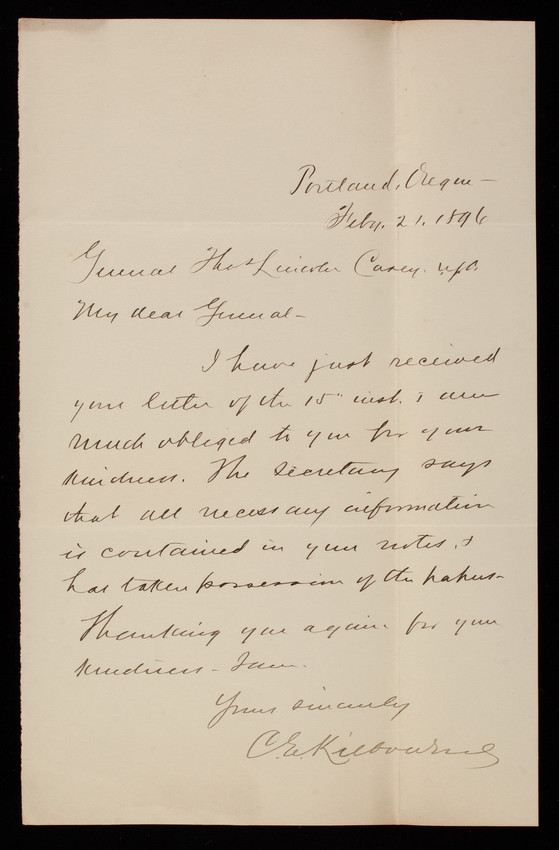 Portland, Oregon—
Feby. 21. 1896
General Thos Lincoln Casey.
My dear General—
I have just received
your letter of the 15" inst. & am
much obliged to you for your
kindness. The Secretary says
that all necessary information
is contained in your notes, &
has taken possession of the papers—
Thanking you again for your
kindness— I am.
Yours sincerely
C. E. Kilbourne